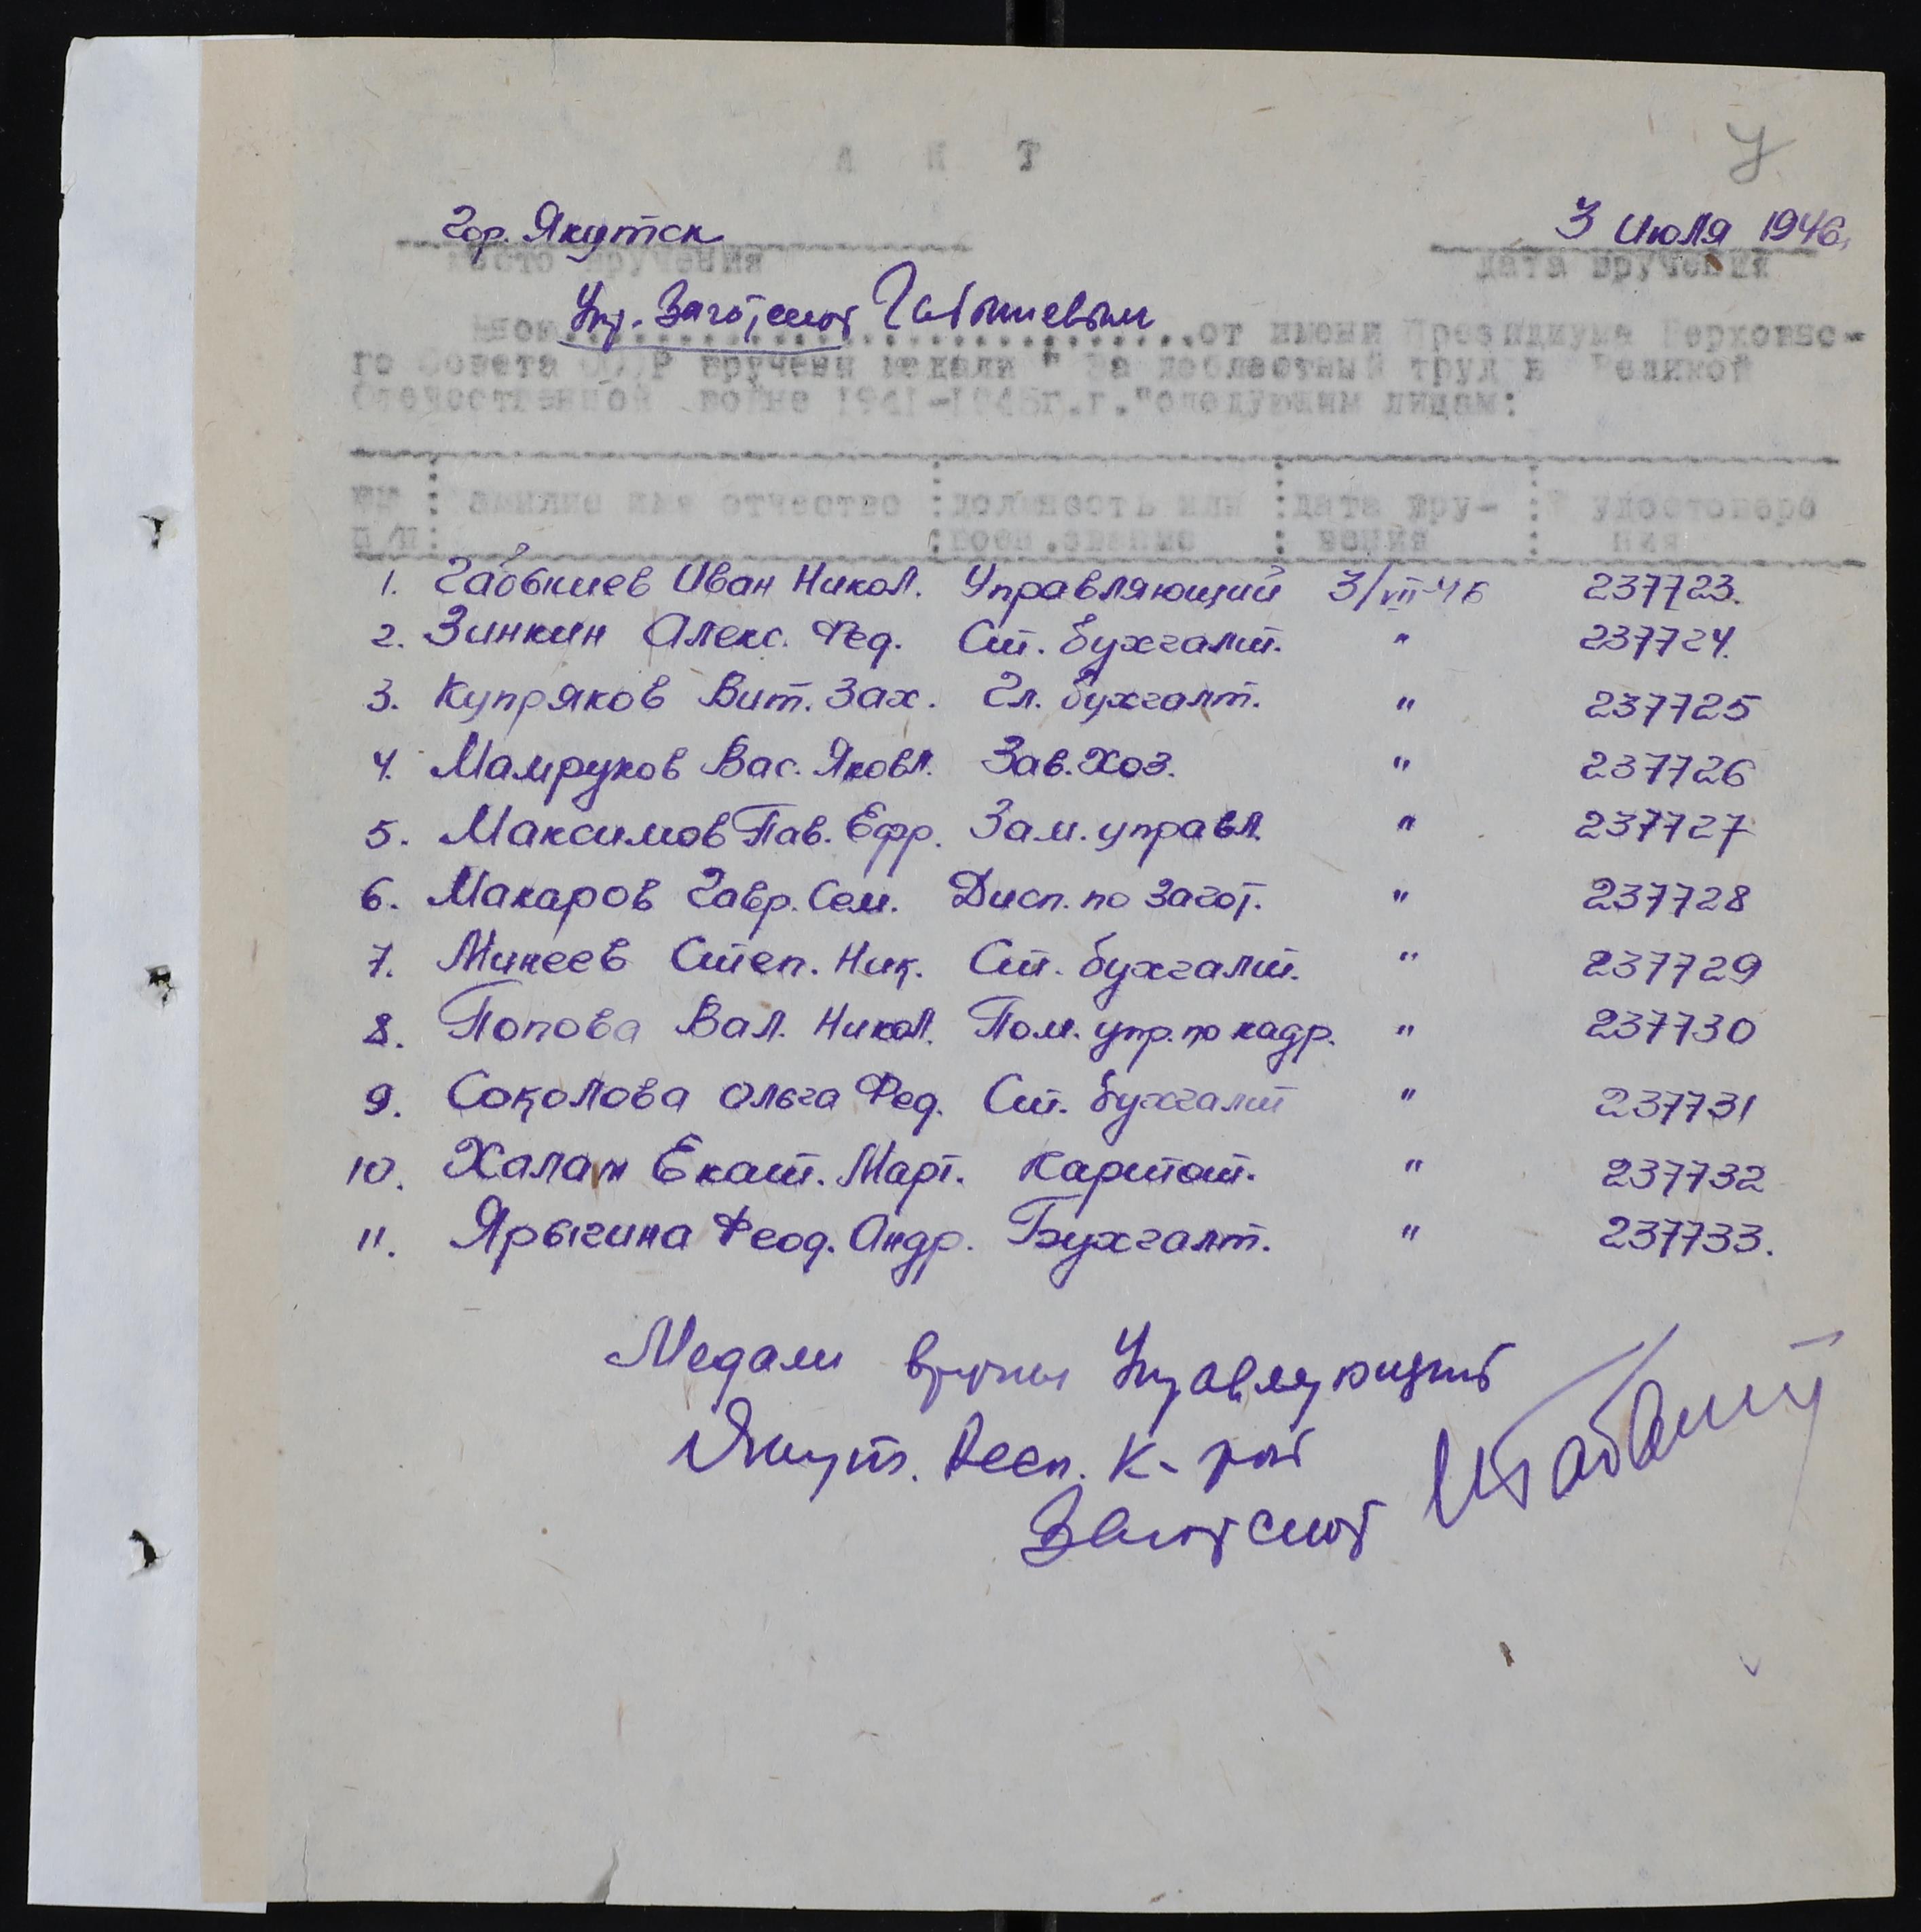 А К Т
гор. Якутск
3 июля 1946.
место вручения
дата вручения
Упр. Заготскот Габышевым
Мною..............................от имени Президиума Верховно-
го Совета СССР вручены медали " За доблестный труд в Великой
Отечественной войне 1941-1945г.г."следующим лицам:
№№ : Фамилие имя отчество : должность или : дата вру- : № удостовере
п/п : : воен.звание : чения : ния
1. Габышев Иван Никол. Управляющий 3/VII-46 237723.
2. Зинкин Алекс. Фед. Ст. бухгалт. " 237724.
3. Купряков Вит. Зах. Гл. бухгалт. " 237725
4. Мамруков Вас. Яковл. Зав. Хоз. " 237726
5. Максимов Пав. Ефр. Зам. управл. " 237727
6. Макаров Гавр. Сем. Дисп. по загот. " 237728
7. Минеев Степ. Ник. Ст. бухгалт. " 237729
8. Попова Вал. Никол. Пом. упр. по кадр. " 237730
9. Соколова Ольга Фед. Ст. бухгалт " 237731
10. Халан Екат. Март. Картот. " 237732
11. Ярыгина Феод. Андр. Бухгалт. " 237733.
Медали вручил Управляющий
Якут. Респ. К-рой
Заготскот